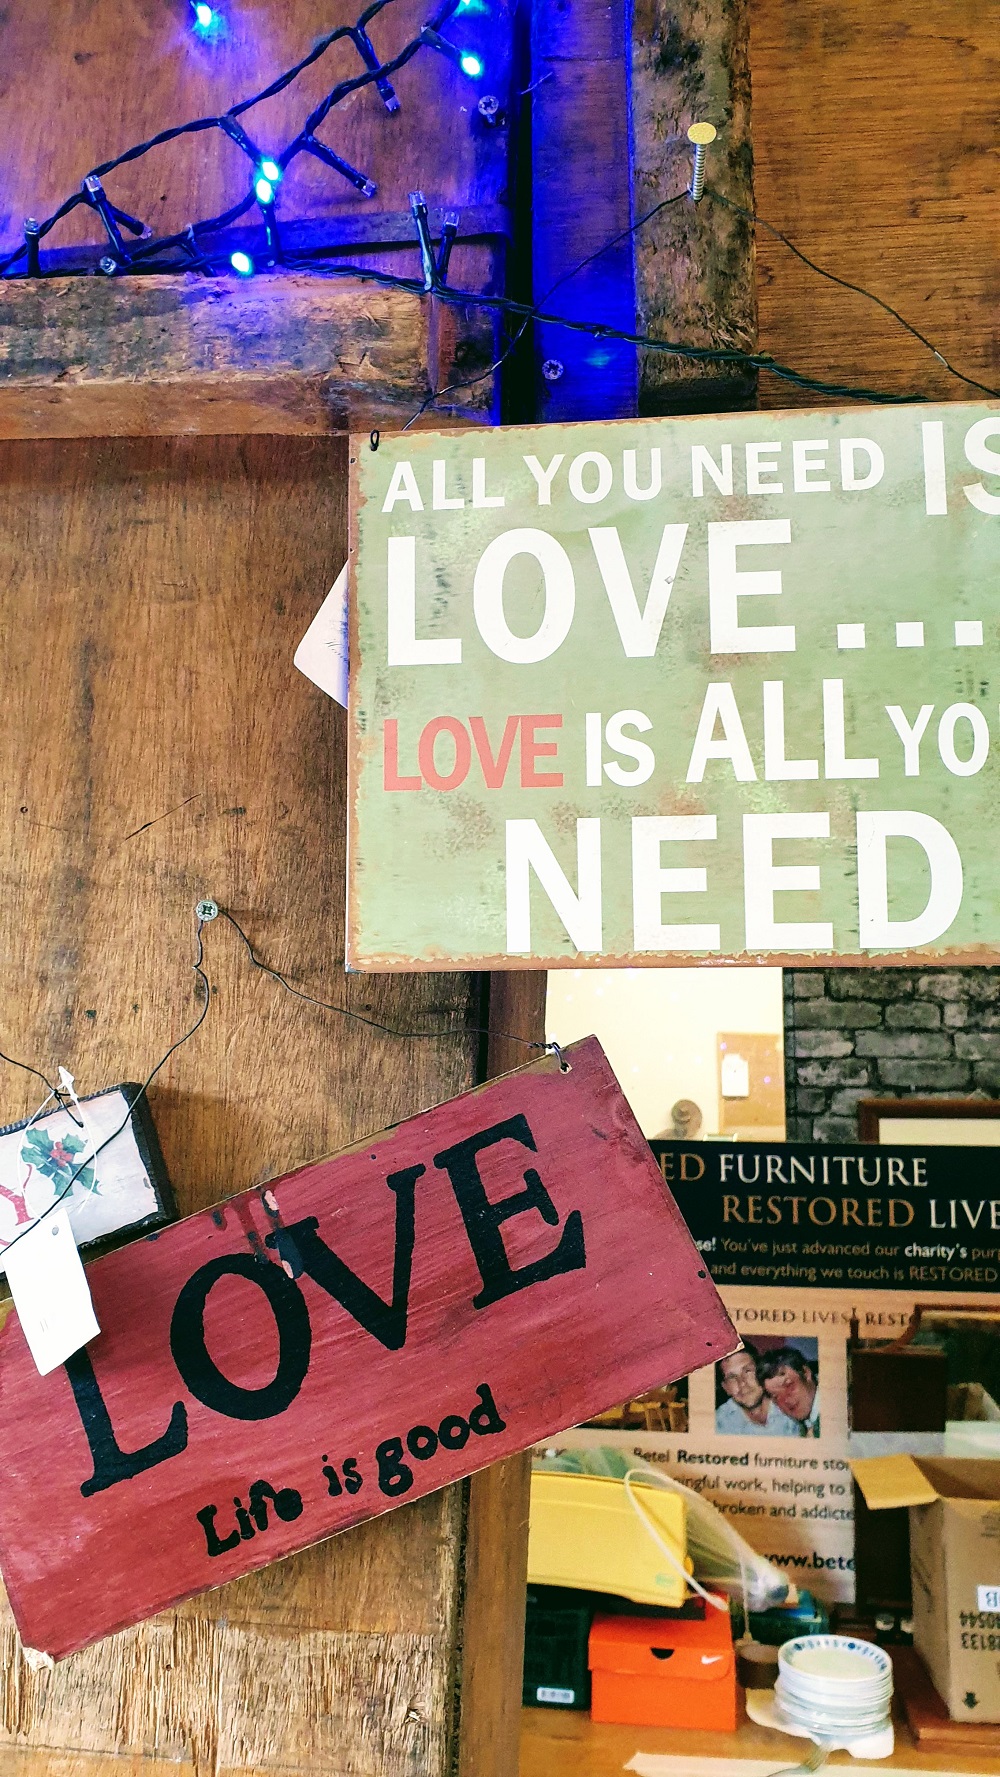 ALL YOU NEED IS
LOVE...
LOVE IS ALL YO
NEED
LOVE
Life is good
Y
ED FURNITURE
RESTORED LIVE
se! You've just advanced our charity's pur
and everything we touch is RESTORED
TORED LIVES REST
Betel Restored furniture stor
ningful work, helping to
broken and addicte
www.bete
28133